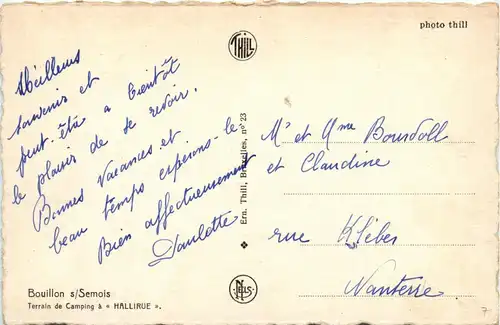 THILL
photo thill
Meilleurs
souvenirs et
peut-être à bientôt
le plaisir de se revoir.
Bonnes vacances et
beau temps espérons-le
Bien affectueusement
Paulette
Ern. Thill, Bruxelles, n° 23
Mr et Mme Bourdoll
et Claudine
rue Kléber
Nanterre
NELS
Bouillon s/Semois
Terrain de Camping à « HALLIRUE ».
7